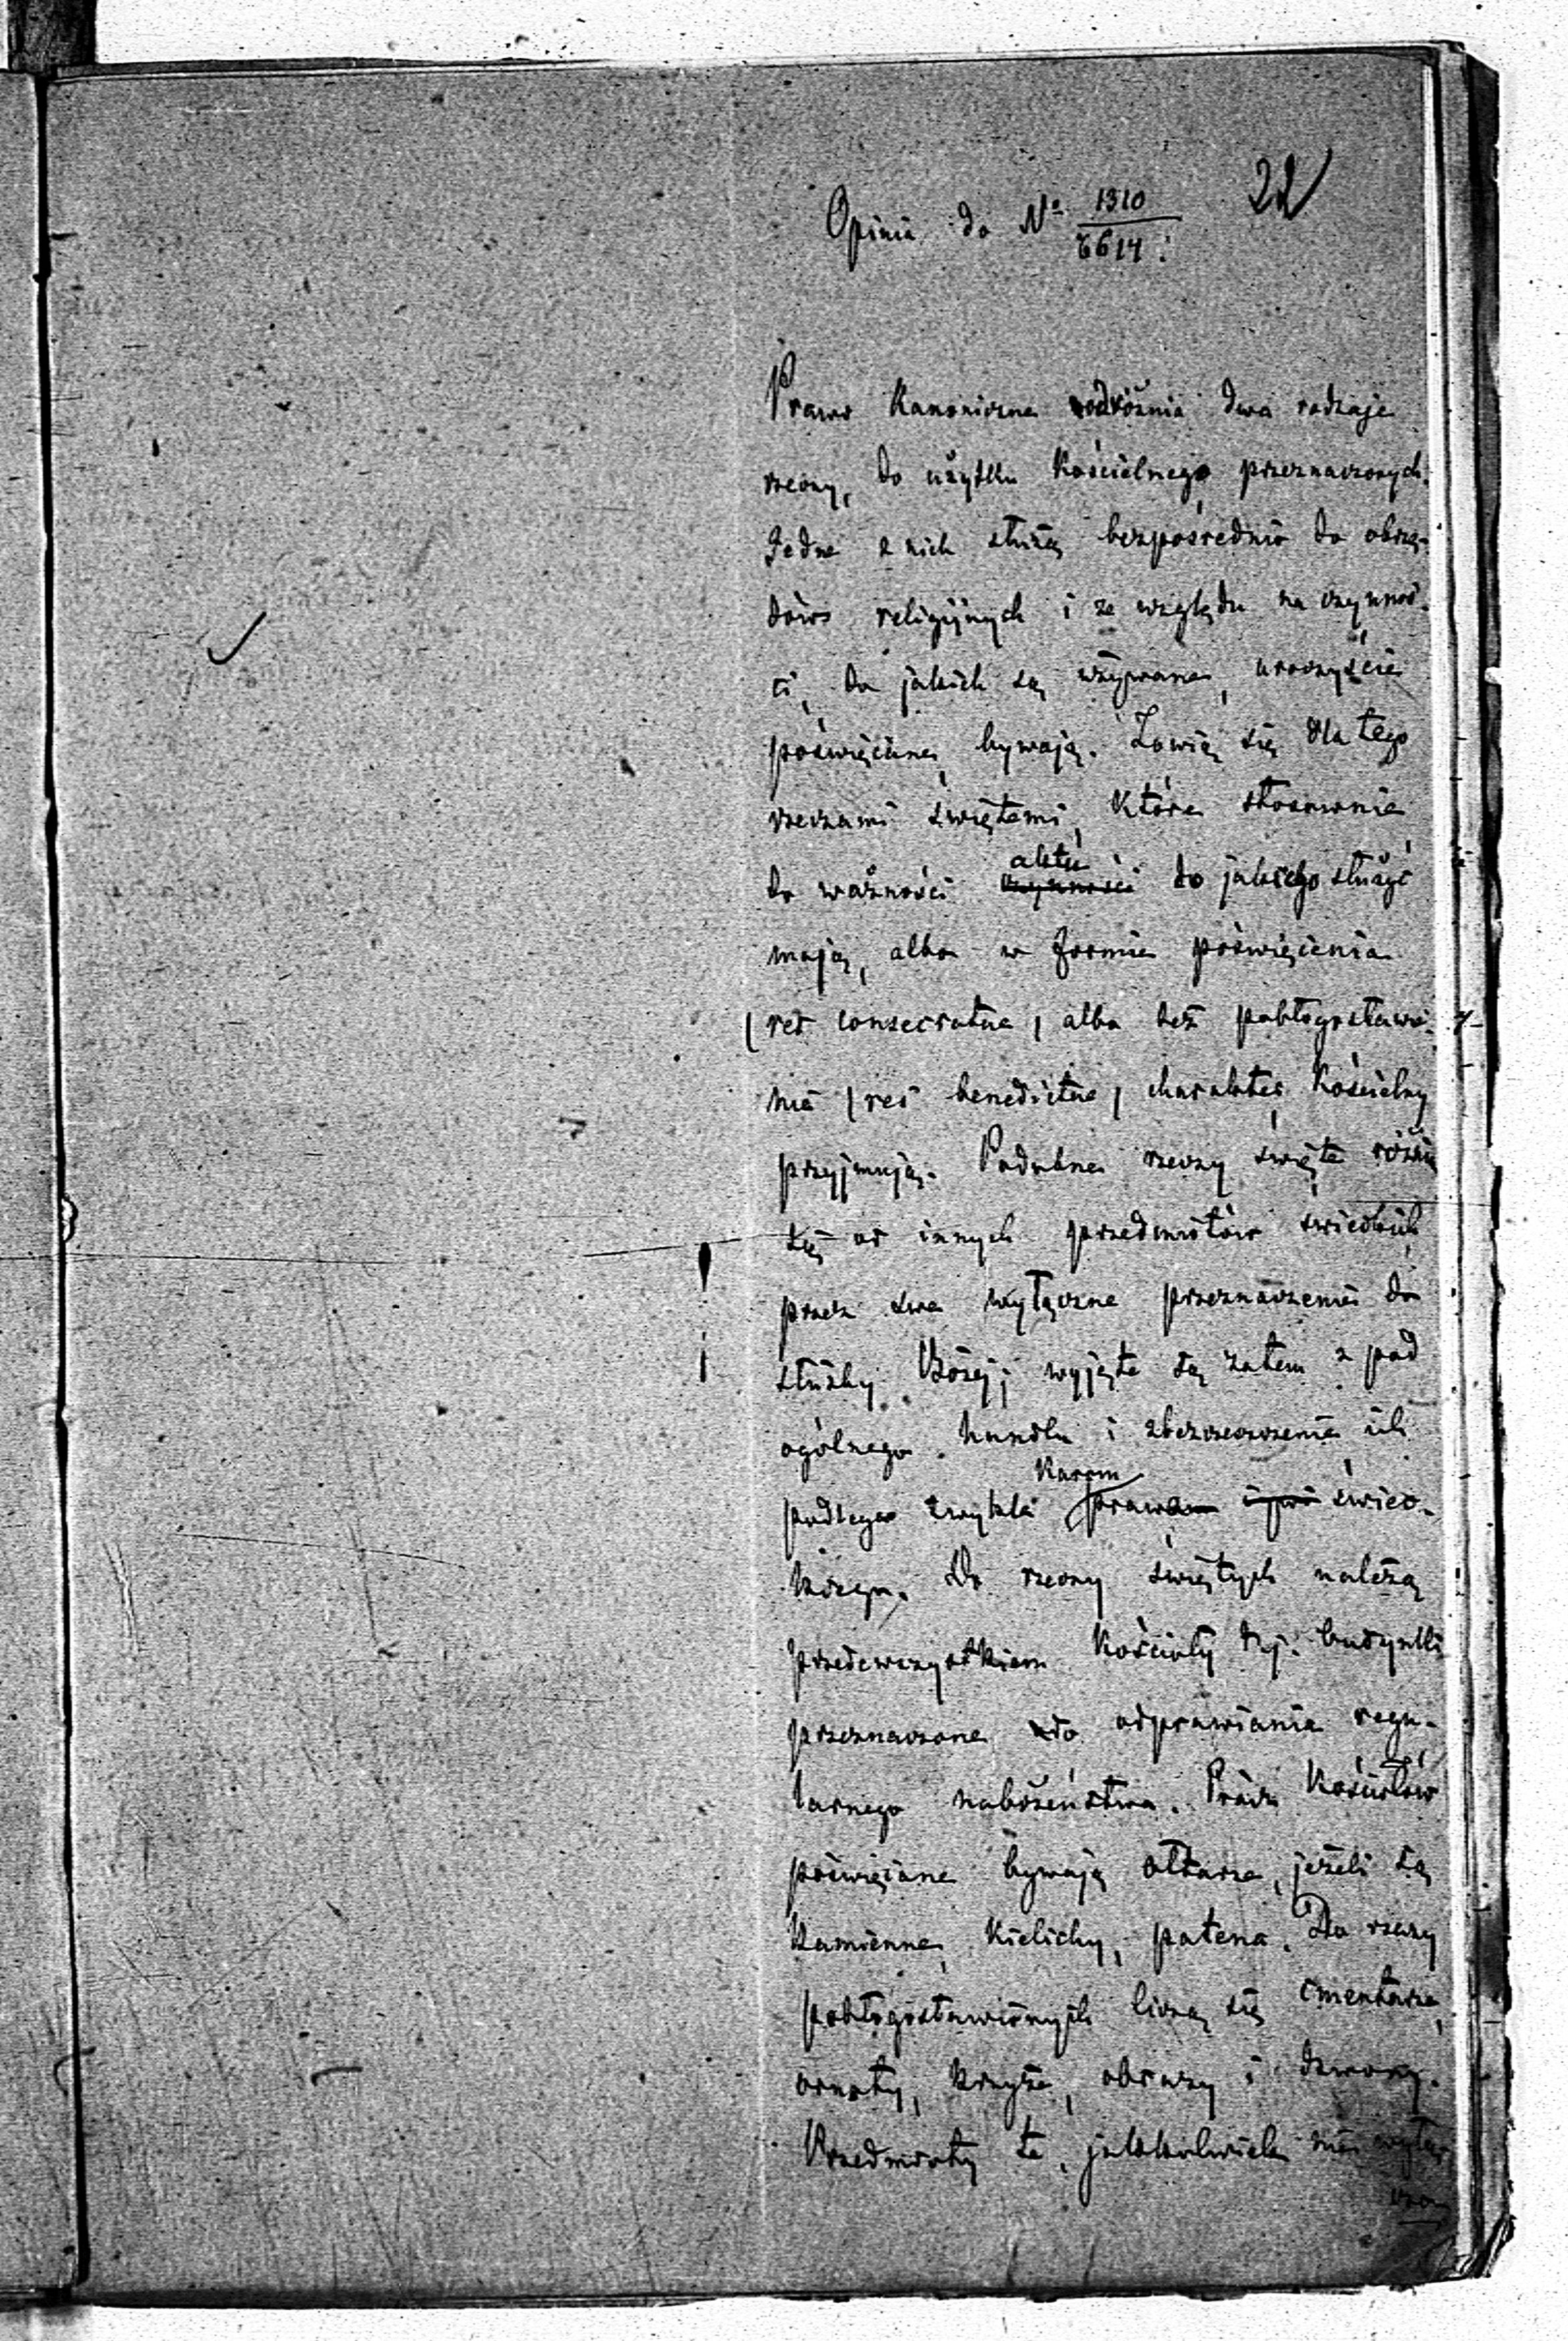 22
Opinia do № 1310
6614.
Prawo Kanoniczne odróżnia dwa rodzaje
rzeczy, do użytku Kościelnego przeznaczonych.
Jedne z nich służą bezpośrednio do obrzę-
dów religijnych i ze względu na czynnoś-
ci, do jakich są używane, uroczyście
poświęcane bywają. Zowią się dla tego
rzeczami świętemi, które stosownie
do ważności aktu czynności do jakiego służyć
mają, albo w formie poświęcenia
(res consecratae) albo też pobłogosławie-
nia (res benedictae) charakter Kościelny
przyjmują. Podobne rzeczy święte różnią
się od innych przedmiotów świeckich
przez swe wyłączne przeznaczenie do
służby Bożej; wyjęte są zatem z pod
ogólnego handlu i zbezczeszczenie ich
podlega zwykle Karom praw świec-
kiego. Do rzeczy świętych należą
przedewszystkiem Kościoły tj. budynki
przeznaczone do odprawiania regu-
larnego nabożeństwa. Prócz Kościołów
poświęcane bywają ołtarze, jeżeli są
Kamienne, Kielichy, patena. Do rzeczy
pobłogosławionych liczą się cmentarze,
ornaty, krzyże, obrazy i dzwony.
Przedmioty te, jakkolwiek nie wyłą-
czo